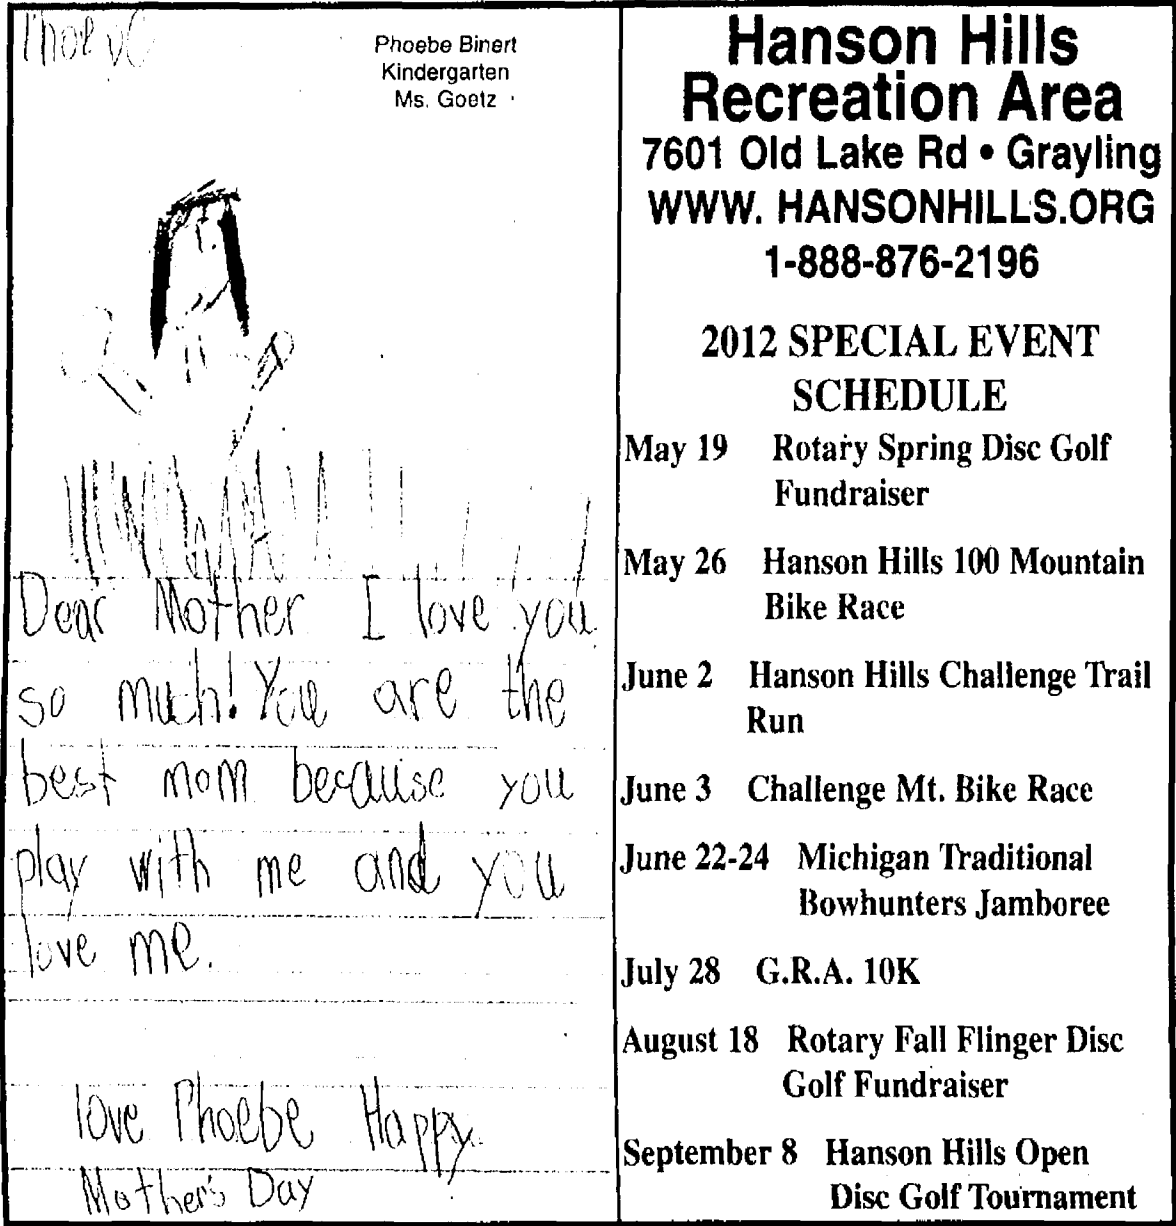 Phoebe
Phoebe Binert
Kindergarten
Ms. Goetz
Dear Mother I love you
so much! You are the
best mom because you
play with me and you
love me.
love Phoebe Happy
Mother's Day
Hanson Hills
Recreation Area
7601 Old Lake Rd • Grayling
WWW. HANSONHILLS.ORG
1-888-876-2196
2012 SPECIAL EVENT
SCHEDULE
May 19 Rotary Spring Disc Golf
Fundraiser
May 26 Hanson Hills 100 Mountain
Bike Race
June 2 Hanson Hills Challenge Trail
Run
June 3 Challenge Mt. Bike Race
June 22-24 Michigan Traditional
Bowhunters Jamboree
July 28 G.R.A. 10K
August 18 Rotary Fall Flinger Disc
Golf Fundraiser
September 8 Hanson Hills Open
Disc Golf Tournament